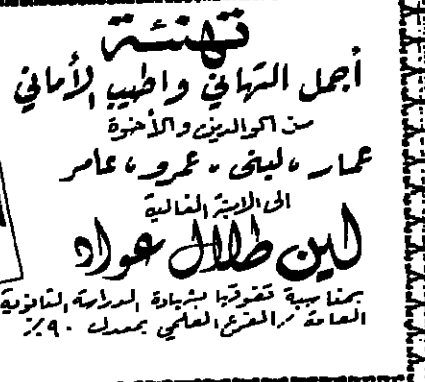 تهنئة
أجمل التهاني واطيب الأماني
من الوالدين والأخوة
عمار، لبنى، عمرو، عامر
الى الابنة الغالية
لين طلال عواد
بمناسبة تفوقها بشهادة الدراسة الثانوية
العامة / الفرع العلمي بمعدل ٩٠٪